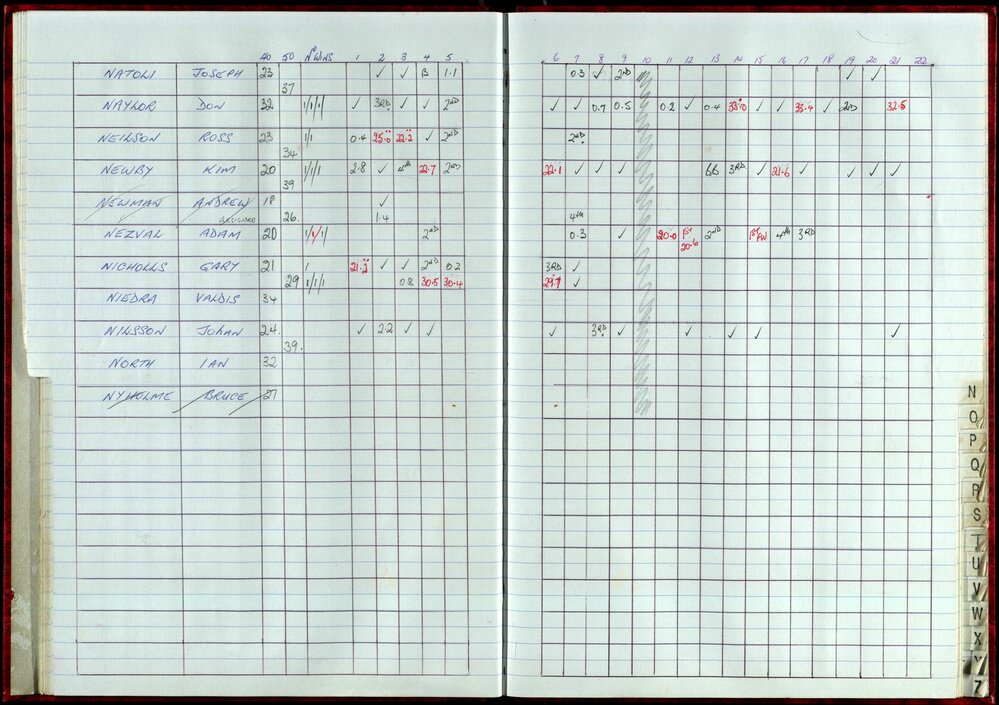 40 50 No WINS 1 2 3 4 5 6 7 8 9 10 11 12 13 14 15 16 17 18 19 20 21 22
NATOLI JOSEPH 23 ✓ ✓ B 1.1 0.3 ✓ 2ND ✓ ✓
37
NAYLOR DON 32 1/1/1/ ✓ 3RD ✓ ✓ 2ND ✓ ✓ 0.7 0.5 0.2 ✓ 0.4 33.0 ✓ ✓ 33.4 ✓ 2ND 32.5
NEILSON ROSS 23 1/1 0.4 25.0 22.2 ✓ 2ND 2ND
34
NEWBY KIM 20 1/1/1 2.8 ✓ 4th 22.7 2ND 22.1 ✓ ✓ ✓ bb 3RD ✓ 21.6 ✓ ✓ ✓ ✓
39
NEWMAN ANDREW 18 ✓
26. 1.4 4th
NEZVAL ADAM 20 1/1/1 2ND 0.3 ✓ 20.0 1st 20.6 2ND 1st 4th 3RD
NICHOLLS GARY 21 / 21.2 ✓ ✓ 2ND 0.2 3RD ✓
29 1/1/1 0.8 30.5 30.4 29.7 ✓
NIEDRA VALDIS 34
NILSSON JOHAN 24. ✓ 2.2 ✓ ✓ ✓ 3RD ✓ ✓ ✓ ✓ ✓
39.
NORTH IAN 32
NYHOLME BRUCE 27
N
O
P
Q
R
S
T
U
V
W
X
Y
Z